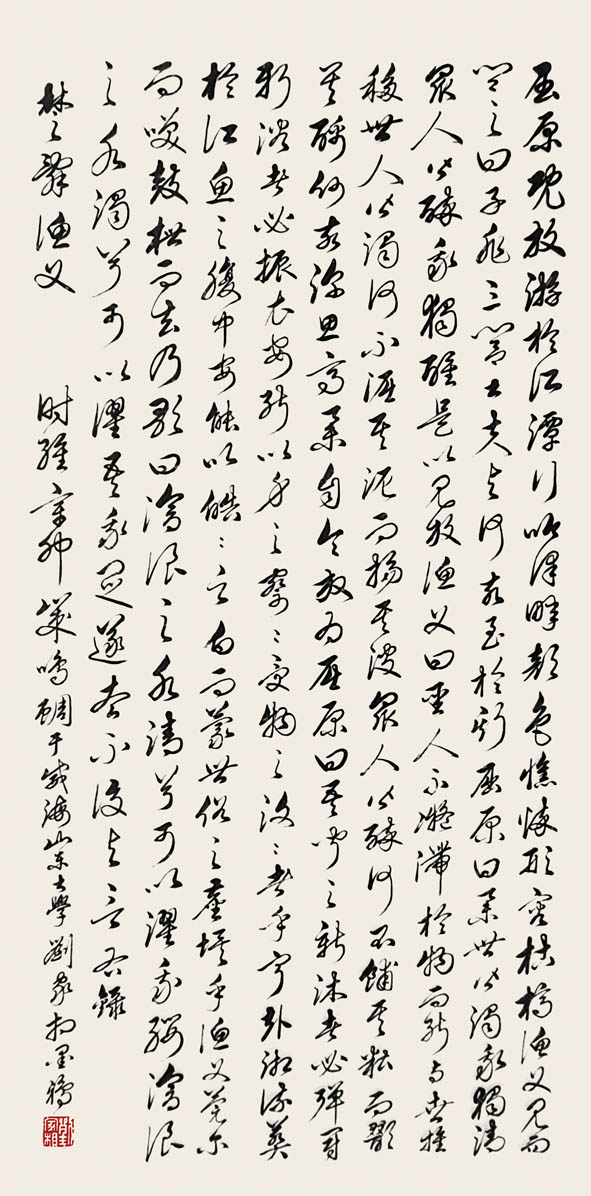 屈原既放游於江潭行吟澤畔顏色憔悴形容枯槁漁父見而
問之曰子非三閭大夫與何故至於斯屈原曰舉世皆濁我獨清
眾人皆醉我獨醒是以見放漁父曰聖人不凝滯於物而能與世推
移世人皆濁何不淈其泥而揚其波眾人皆醉何不餔其糟而歠
其醨何故深思高舉自令放為屈原曰吾聞之新沐者必彈冠
新浴者必振衣安能以身之察〻受物之汶〻者乎寧赴湘流葬
於江魚之腹中安能以皓〻之白而蒙世俗之塵埃乎漁父莞爾
而笑鼓枻而去乃歌曰滄浪之水清兮可以濯我纓滄浪
之水濁兮可以濯吾我足遂去不復與言右錄
楚辭漁父 時維辛卯歲鳴蜩于威海山東大學劉家相墨